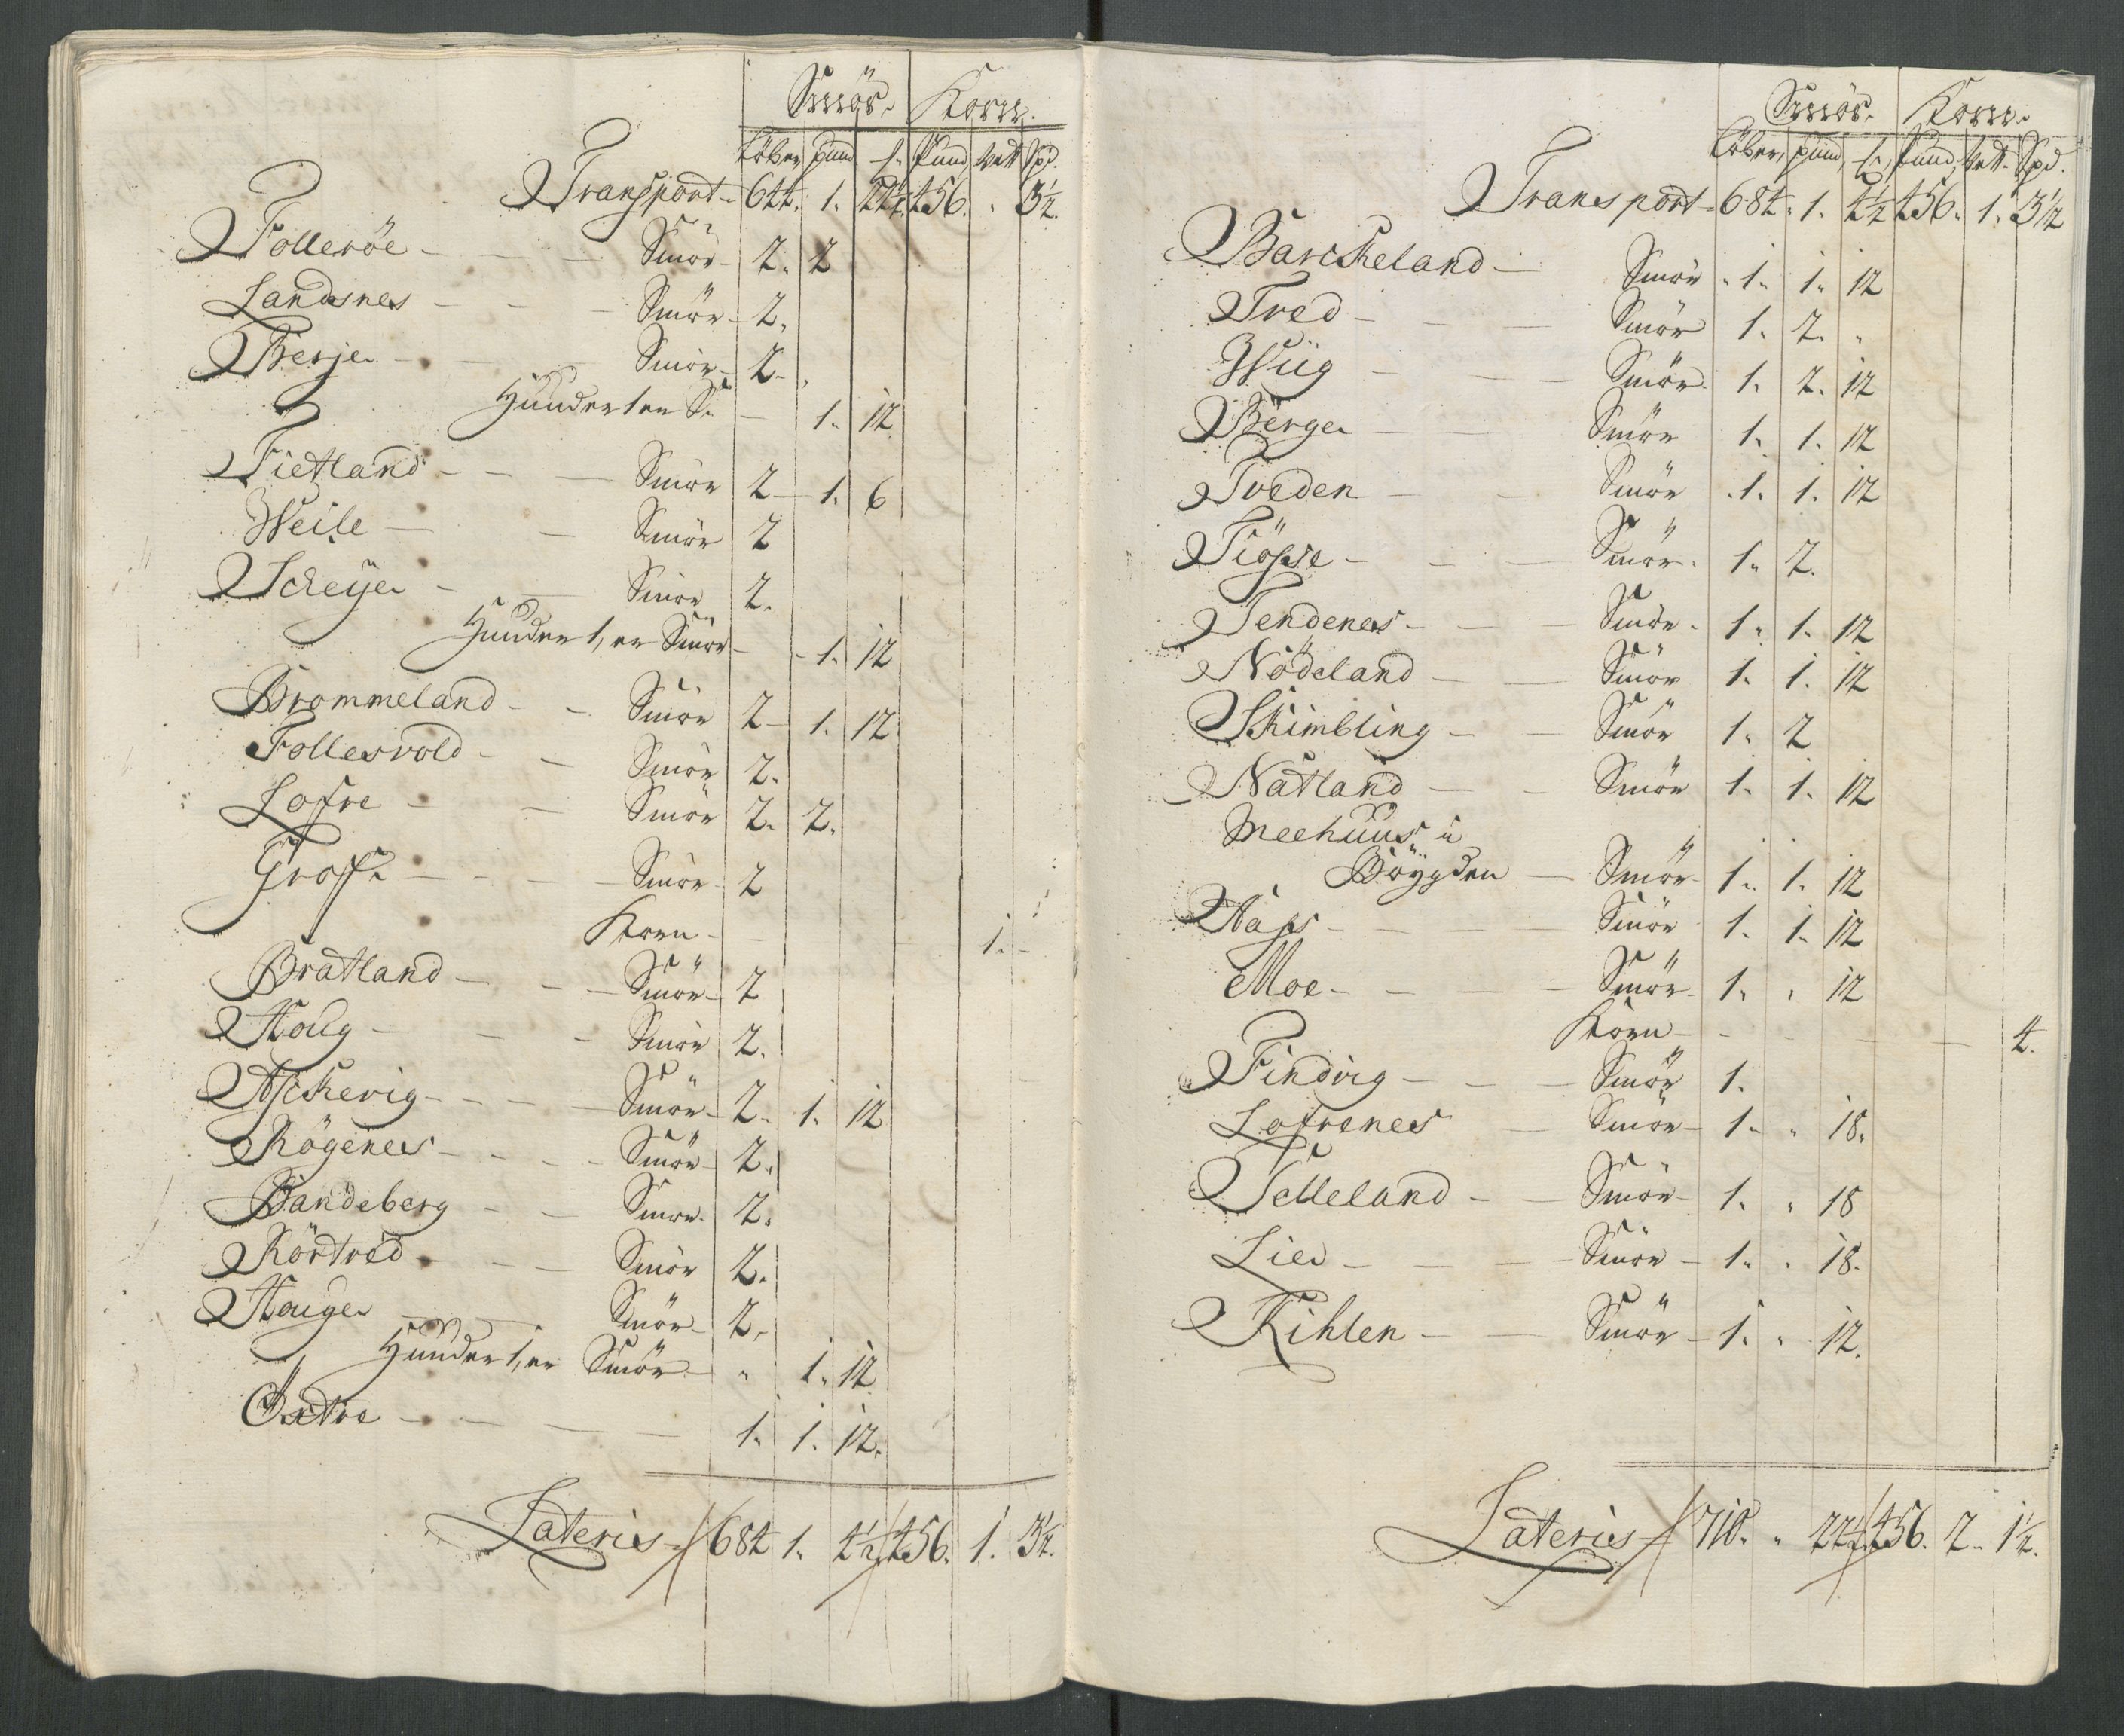 Smör. Korn.
Löber, pund ℔. Pund, Vett Spd.
Transport - 644. 1. 22½. 456. " 3½.
Folleröe - Smör - 2. 2
Landsnes - Smör - 2.
Trerje - Smör - 2.
Hundert en S. - 1. 12
Tietland - Smör 2 - 1. 6
Weile - Smör 2
Scheÿe - Smör 2.
Hundert, en Smör - 1. 12
Brommeland - Smör 2 - 1. 12
Follesvold - Smör 2.
Lofre - Smör 2. 2.
Groff - Smör 2
Korn - 1. -
Bratland - Smör - 2
Houg - Smör 2.
Aschevig - Smör - 2. 1. 12
Rögenes - Smör - 2.
Bandeberg - Smör - 2.
Körtved - Smör 2.
Houge - Smör - 2.
Hundert, en Smör - " 1. 12
Oxtre - 1. 1. 12.
Lateris - 684 1. 4½ 456. 1. 3½.
Smör. Korn.
Löber, pund, ℔. Pund, Vett. Spd.
Transport - 684. 1. 4½ 456. 1. 3½
Barckeland - Smör 1. 1. 12
Tved - Smör 1. 2. "
Wiig - Smör 1. 2. 12
Berge - Smör 1. 1. 12
Tveden - Smör 1. 1. 12
Tiösse - Smör 1. 2.
Tendenes - Smör 1. 1. 12
Nödeland - Smör 1. 1. 12
Skimbling - Smör 1. 2
Natland - Smör 1. 1. 12
Meehuus i
Böÿgden - Smör 1. 1. 12
Haps - Smör 1. 1. 12
Moe - Smör 1. " 12
Korn - 4.
Findvig - Smör 1.
Lofrenes - Smör - 1. " 18.
Selleland - Smör - 1. " 18
Lied - Smör - 1. " 18.
Kihlen - Smör - 1. " 12.
Lateris - 710. " 22½. 456. 2. 1½.